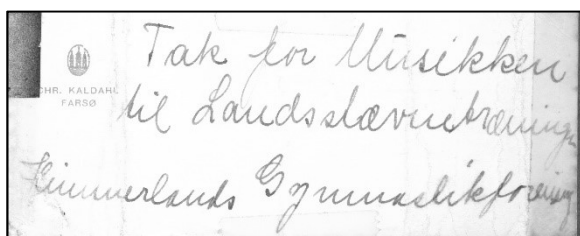 CHR. KALDAHL
FARSØ
Tak for Musikken
til Landsstævnetræningen
Himmerlands Gymnastikforening